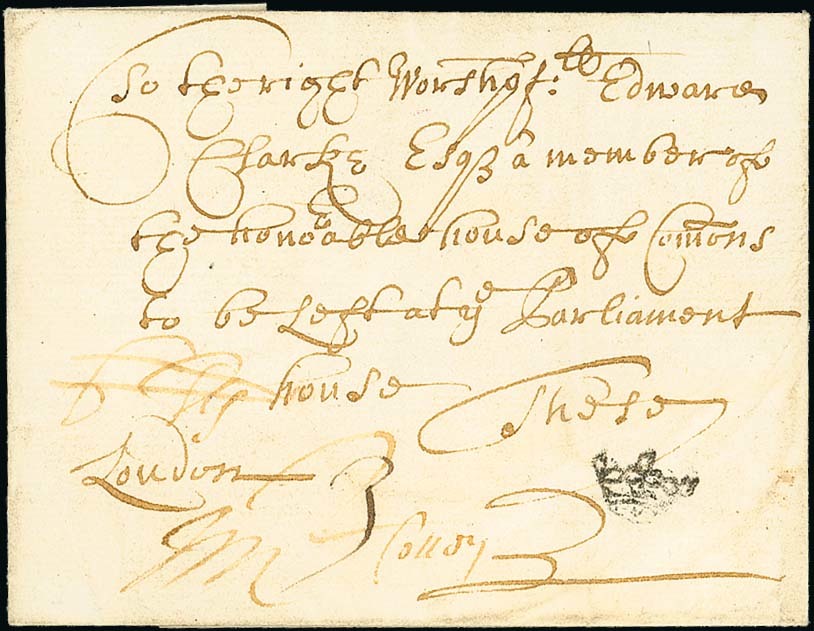 To the right Worshipfull Edward
Clarke Esqr a member of
the honorable house of Comons
to be left at ye Parliament
house These
London 3